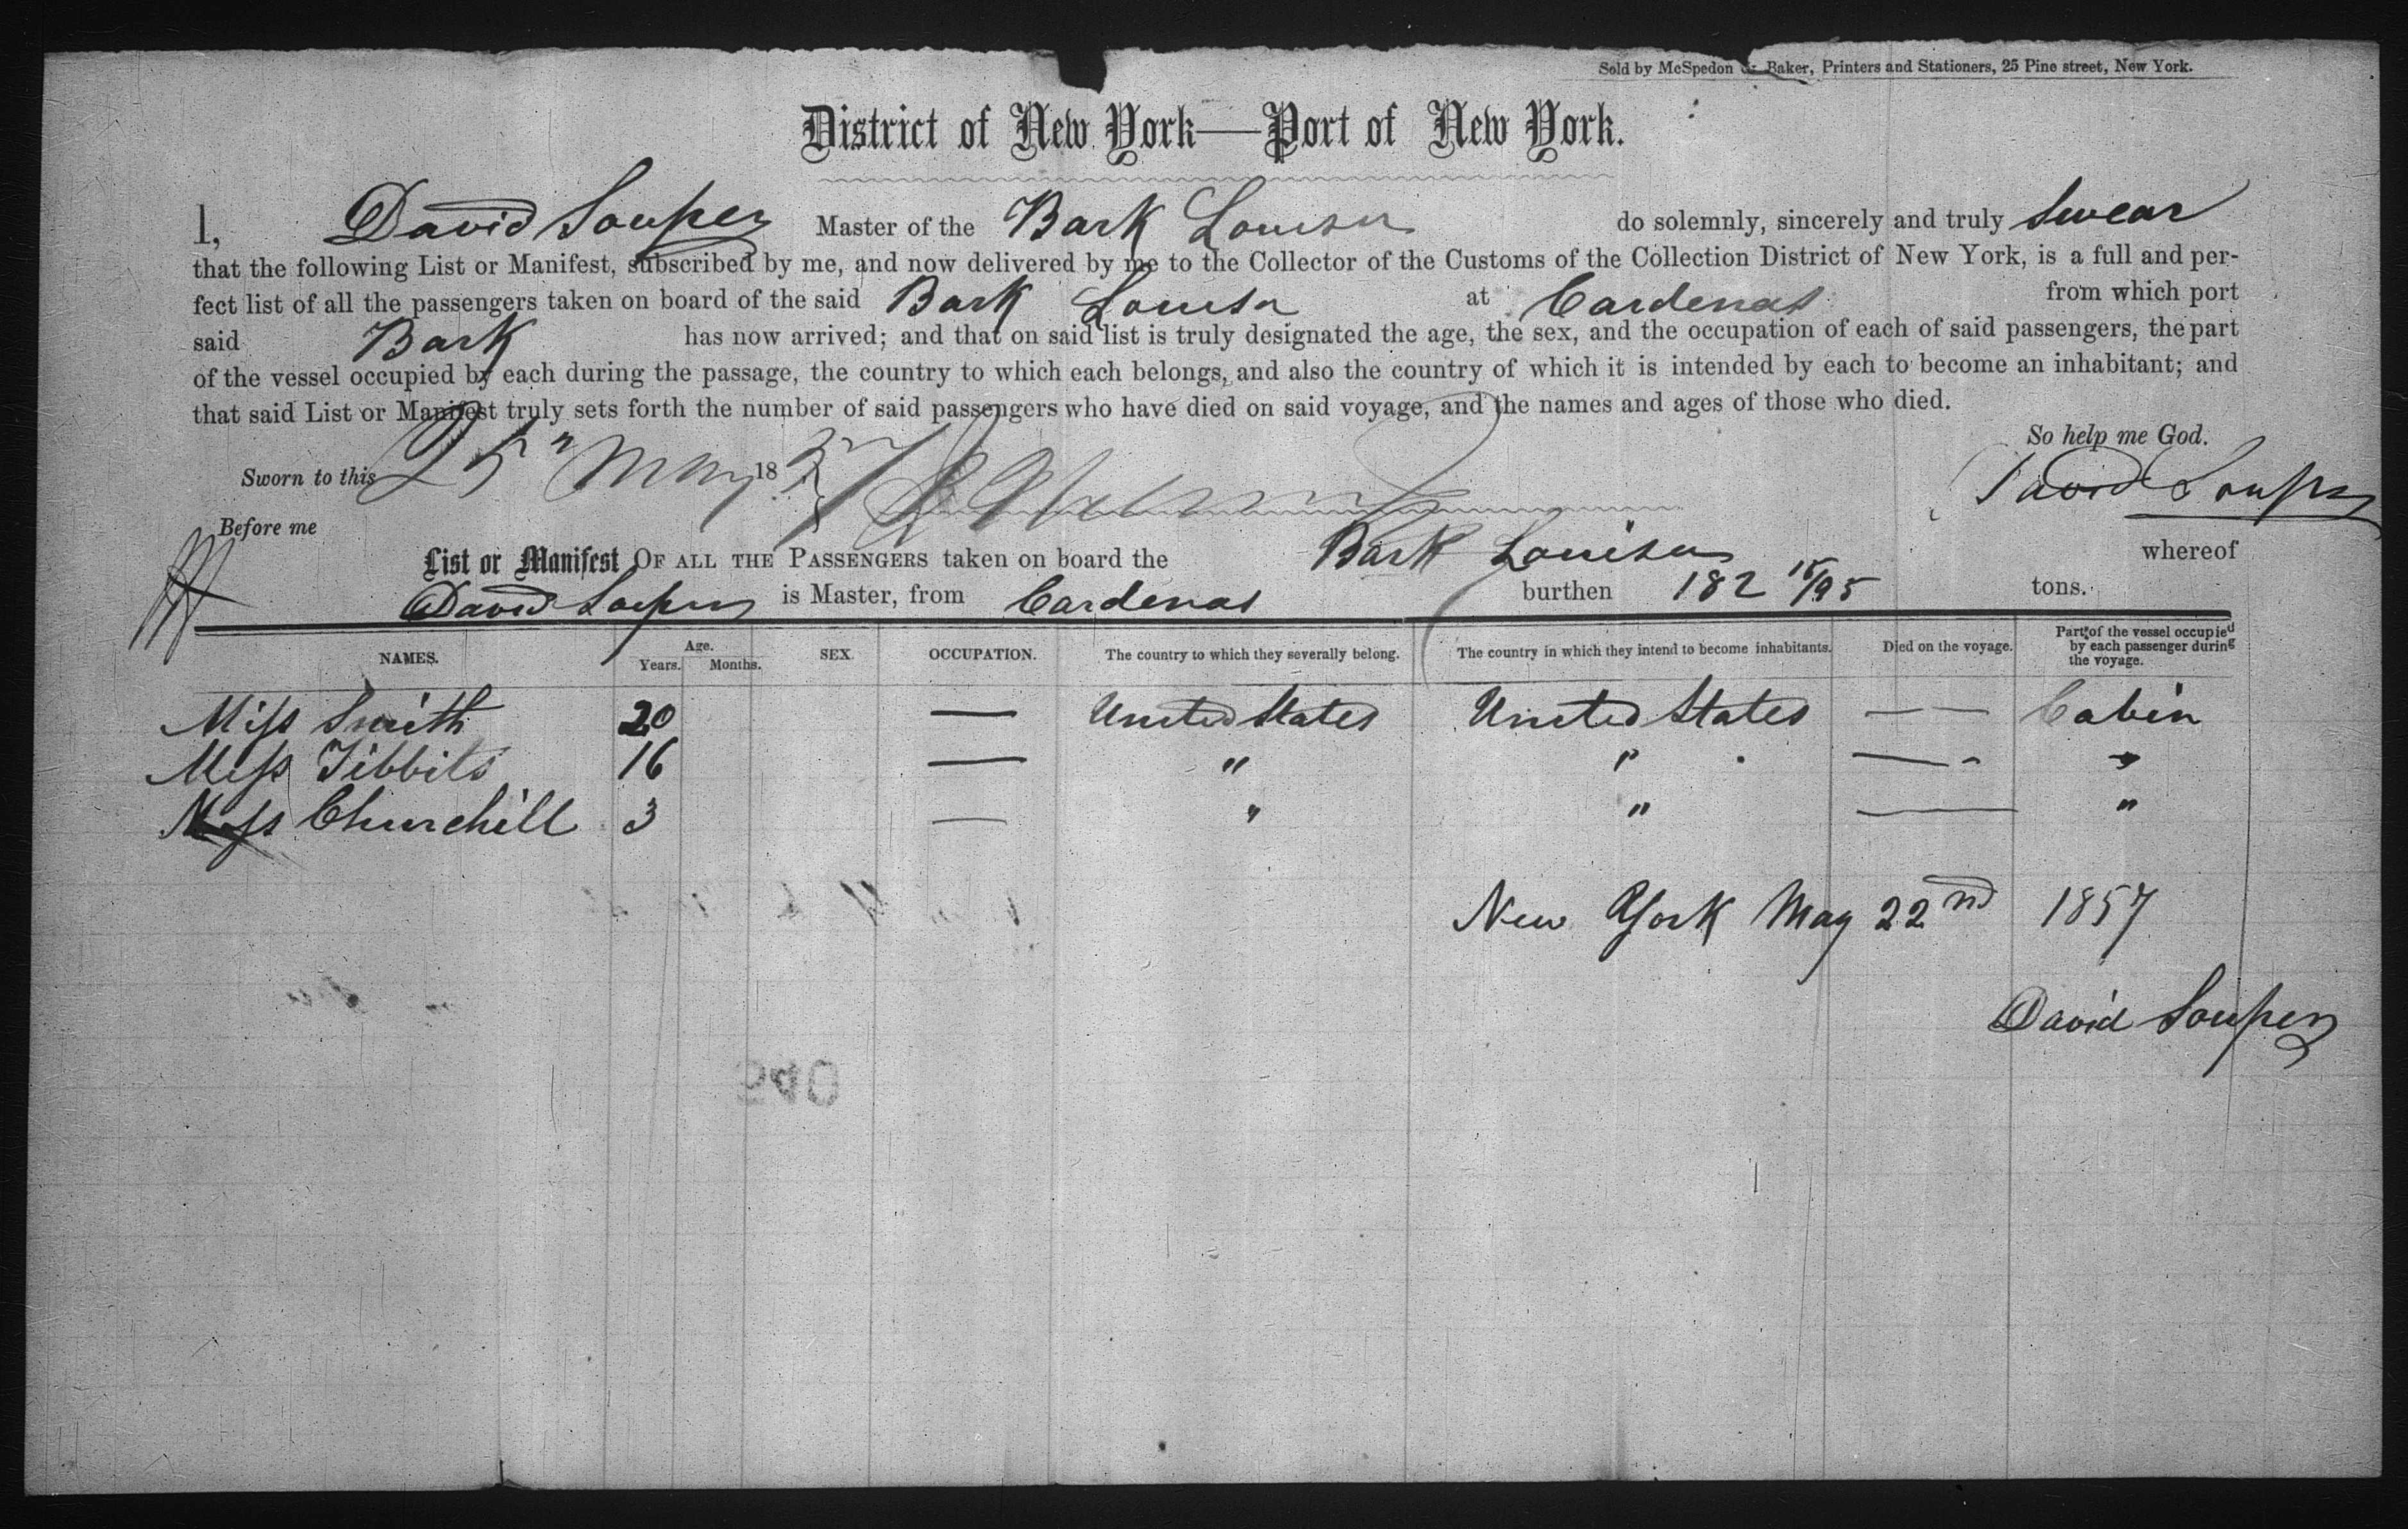 Sold by McSpedon & Baker, Printers and Stationers, 25 Pine street, New York.
District of New York—Port of New York.
I, David Souper Master of the Bark Louisa do solemnly, sincerely and truly swear
that the following List or Manifest, subscribed by me, and now delivered by me to the Collector of the Customs of the Collection District of New York, is a full and per-
fect list of all the passengers taken on board of the said Bark Louisa at Cardenas from which port
said Bark has now arrived; and that on said list is truly designated the age, the sex, and the occupation of each of said passengers, the part
of the vessel occupied by each during the passage, the country to which each belongs, and also the country of which it is intended by each to become an inhabitant; and
that said List or Manifest truly sets forth the number of said passengers who have died on said voyage, and the names and ages of those who died.
So help me God.
Sworn to this 25 May 1857 David Souper
Before me
List or Manifest OF ALL THE PASSENGERS taken on board the Bark Louisa whereof
David Souper is Master, from Cardenas burthen 182 15/95 tons.
NAMES. Age. Years. Months. SEX. OCCUPATION. The country to which they severally belong. The country in which they intend to become inhabitants. Died on the voyage. Part of the vessel occupied by each passenger during the voyage.
Miss Smith 20 — United States United States — — Cabin
Miss Tibbits 16 — " " — - "
Miss Churchill 3 — " " — "
New York May 22nd 1857
David Souper